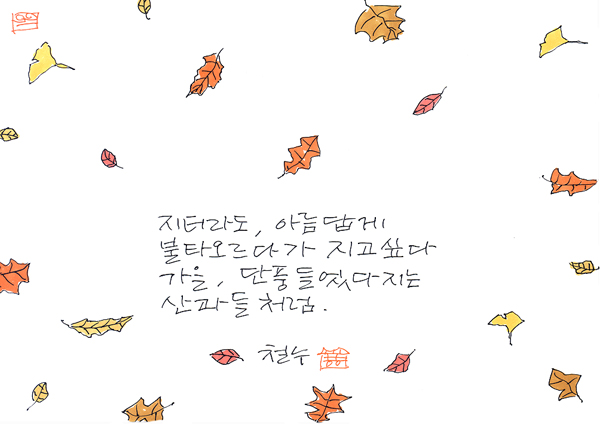 지더라도, 아름답게
불타오르다가 지고싶다
가을, 단풍들었다지는
산과들처럼.
철수